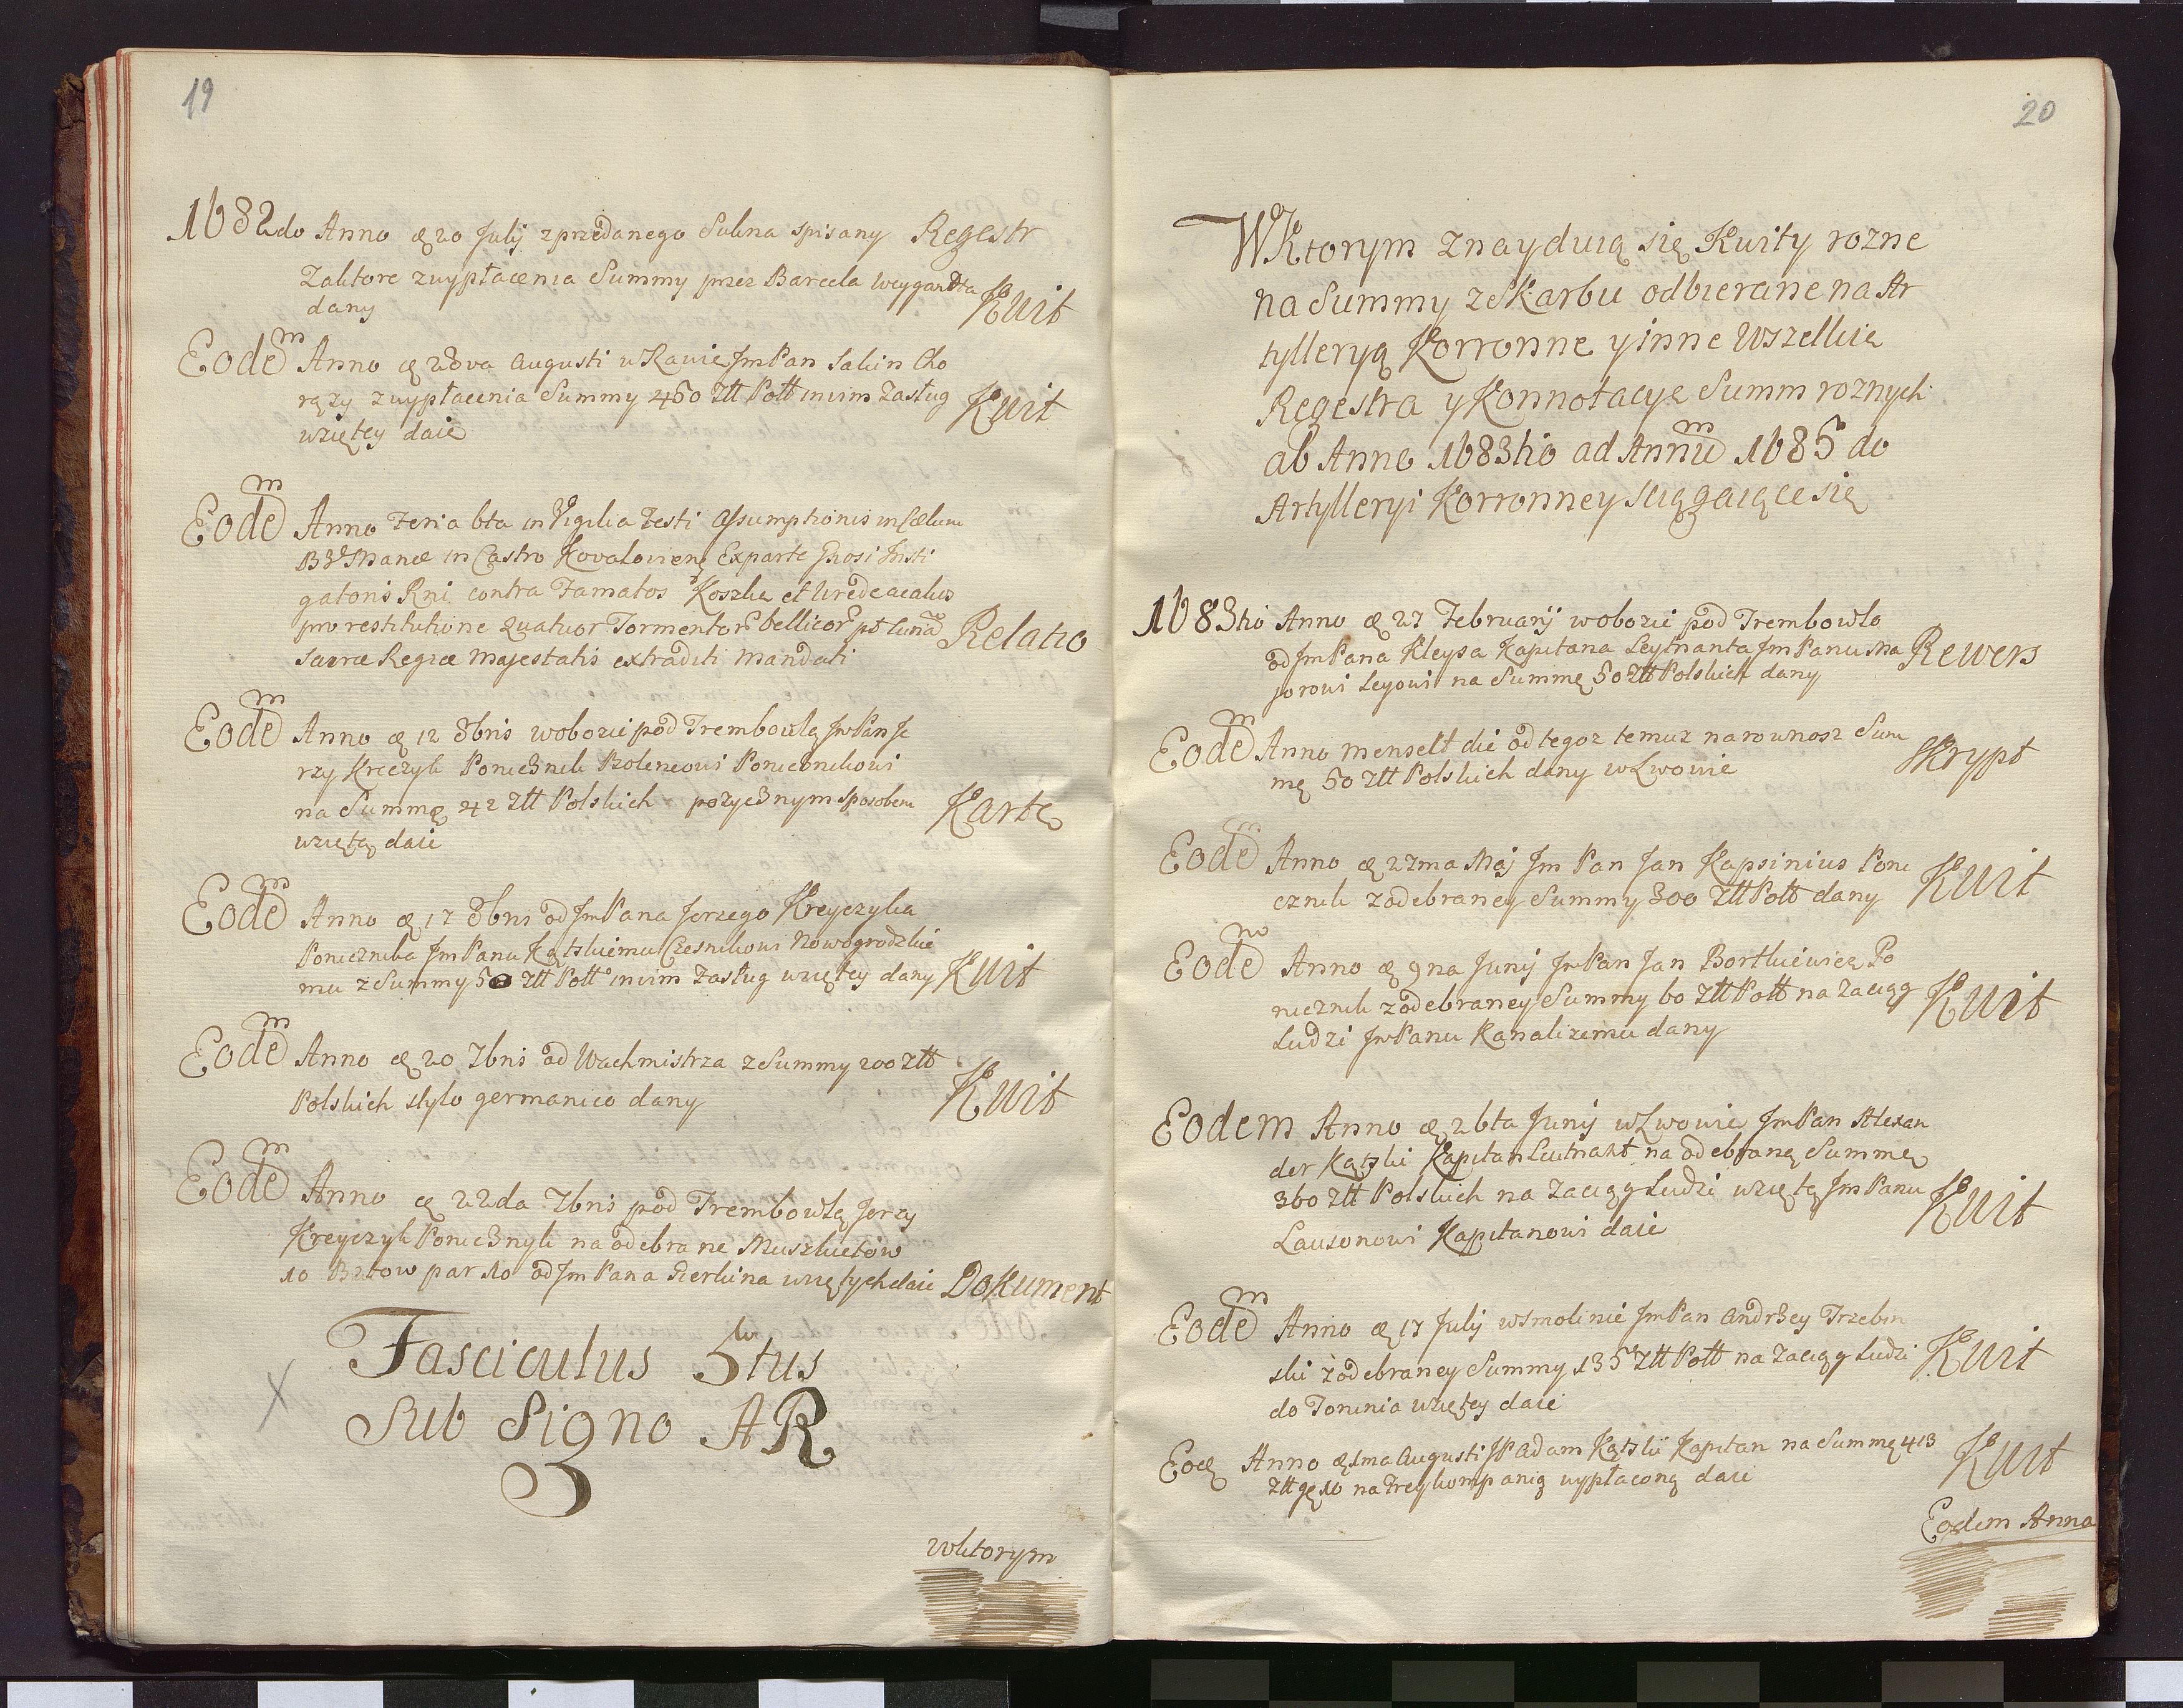 19
1682do Anno æ 20 July z przedanego Sukna spisany Regestr
Zaktore z wypłacenia Summy przez Barcela Weyganta
dany Kwit
Eodem Anno æ 28va Augusti w Rawie Jm Pan Sakin Cho
rąży z wypłacenia Summy 450 Złł Poll in vim Zasług Kwit
wziętey daie
Eodem Anno Feria 6ta in Vigilia Festi Assumptionis in Cælum
B V Mariæ in Castro Kovaloviens Ex parte Gnosi Insti
gatoris Rni contra Famatos Koszke et
pro restitutione quatuor Tormentor bellicor
Sacræ Regiæ Majestatis extraditi Mandati Relatio
Eodem Anno æ 12 8bris w obozie pod Trembowlą Jm Pan Je
rzy Kreczyk Porucznik Porucznikowi
na Summę 42 Złł Polskich pożycznym sposobem Kartę
wziętą daie
Eodem Anno æ 17 8bris od Jm Pana Jerzego Kreyczyka
Porucznika Jm Panu Kątskiemu Czesnikowi Nowogrodzkie
mu z Summy 50 Złł Poll in vim Zasług wziętey dany Kwit
Eodem Anno æ 20 7bris od Wachmistrza z Summy 200 Złł
Polskich stylo germanico dany Kwit
Eodem Anno æ 22da 7bris pod Trembowlą Jerzy
Kreyczyk Porucznyk na odebrane Muszkietów
10 Butow par 10 od Jm Pana wziętych daie Dokument
Fasciculus 5tus
Sub Signo AR
w ktorym
20
W Ktorym znayduią się Kwity rozne
na Summy z Skarbu odbierane na Ar
tylleryą Korronne y inne Wszelkie
Regestra y Konnotacye Summ roznych
ab Anno 1683tio ad Annum 1685 do
Artylleryi Korronney sciągaiące się
1683tio Anno æ 27 February w obozie pod Trembowlo
od Jm Pana Kleysa Kapitana Leytnanta Jm Panu Ma Rewers
jorowi Leyowi na Summę 50 Złł Polskich dany
Eodem Anno mense et die od tegoz temuz na rownosz Sum Skrypt
mę 50 Złł Polskich dany w Lwowie
Eodem Anno æ 27ma Maj Jm Pan Jan Kapsinius Poru
cznik z odebraney Summy 300 Złł Poll dany Kwit
Eodem Anno æ 9na Juny Jm Pan Jan Bortkiewicz Po
rucznik z odebraney Summy 60 Złł Poll na Zaciąg Kwit
Ludzi Jm Panu Kanalizemu dany
Eodem Anno æ 26ta Juny w Lwowie Jm Pan Alexan
der Kątzki Kapitan Leutnant na odebraną Summę
360 Złł Polskich na Zaciąg Ludzi wziętą Jm Panu Kwit
Lausonowi Kapitanowi daie
Eodem Anno æ 17 July w Smolinie Jm Pan Andrzey Trzebin
ski z odebraney Summy 135 Złł Poll na Zaciąg Ludzi Kwit
do Torunia wziętey daie
Eodę Anno æ 1ma Augusti JP Adam Kątski Kapitan na Summę 413
Złł gę 10 na Frey kompanią wypłaconą daie Kwit
Eodem Anno